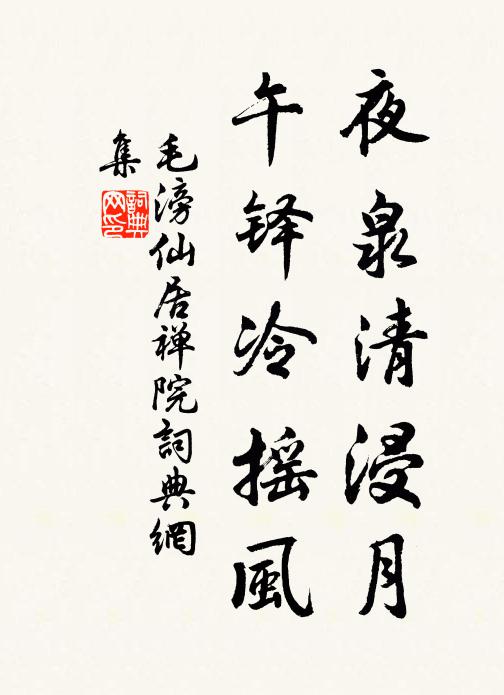 夜泉清浸月
午铎冷摇風
毛滂仙居禅院詞典網
集
詞典
网印